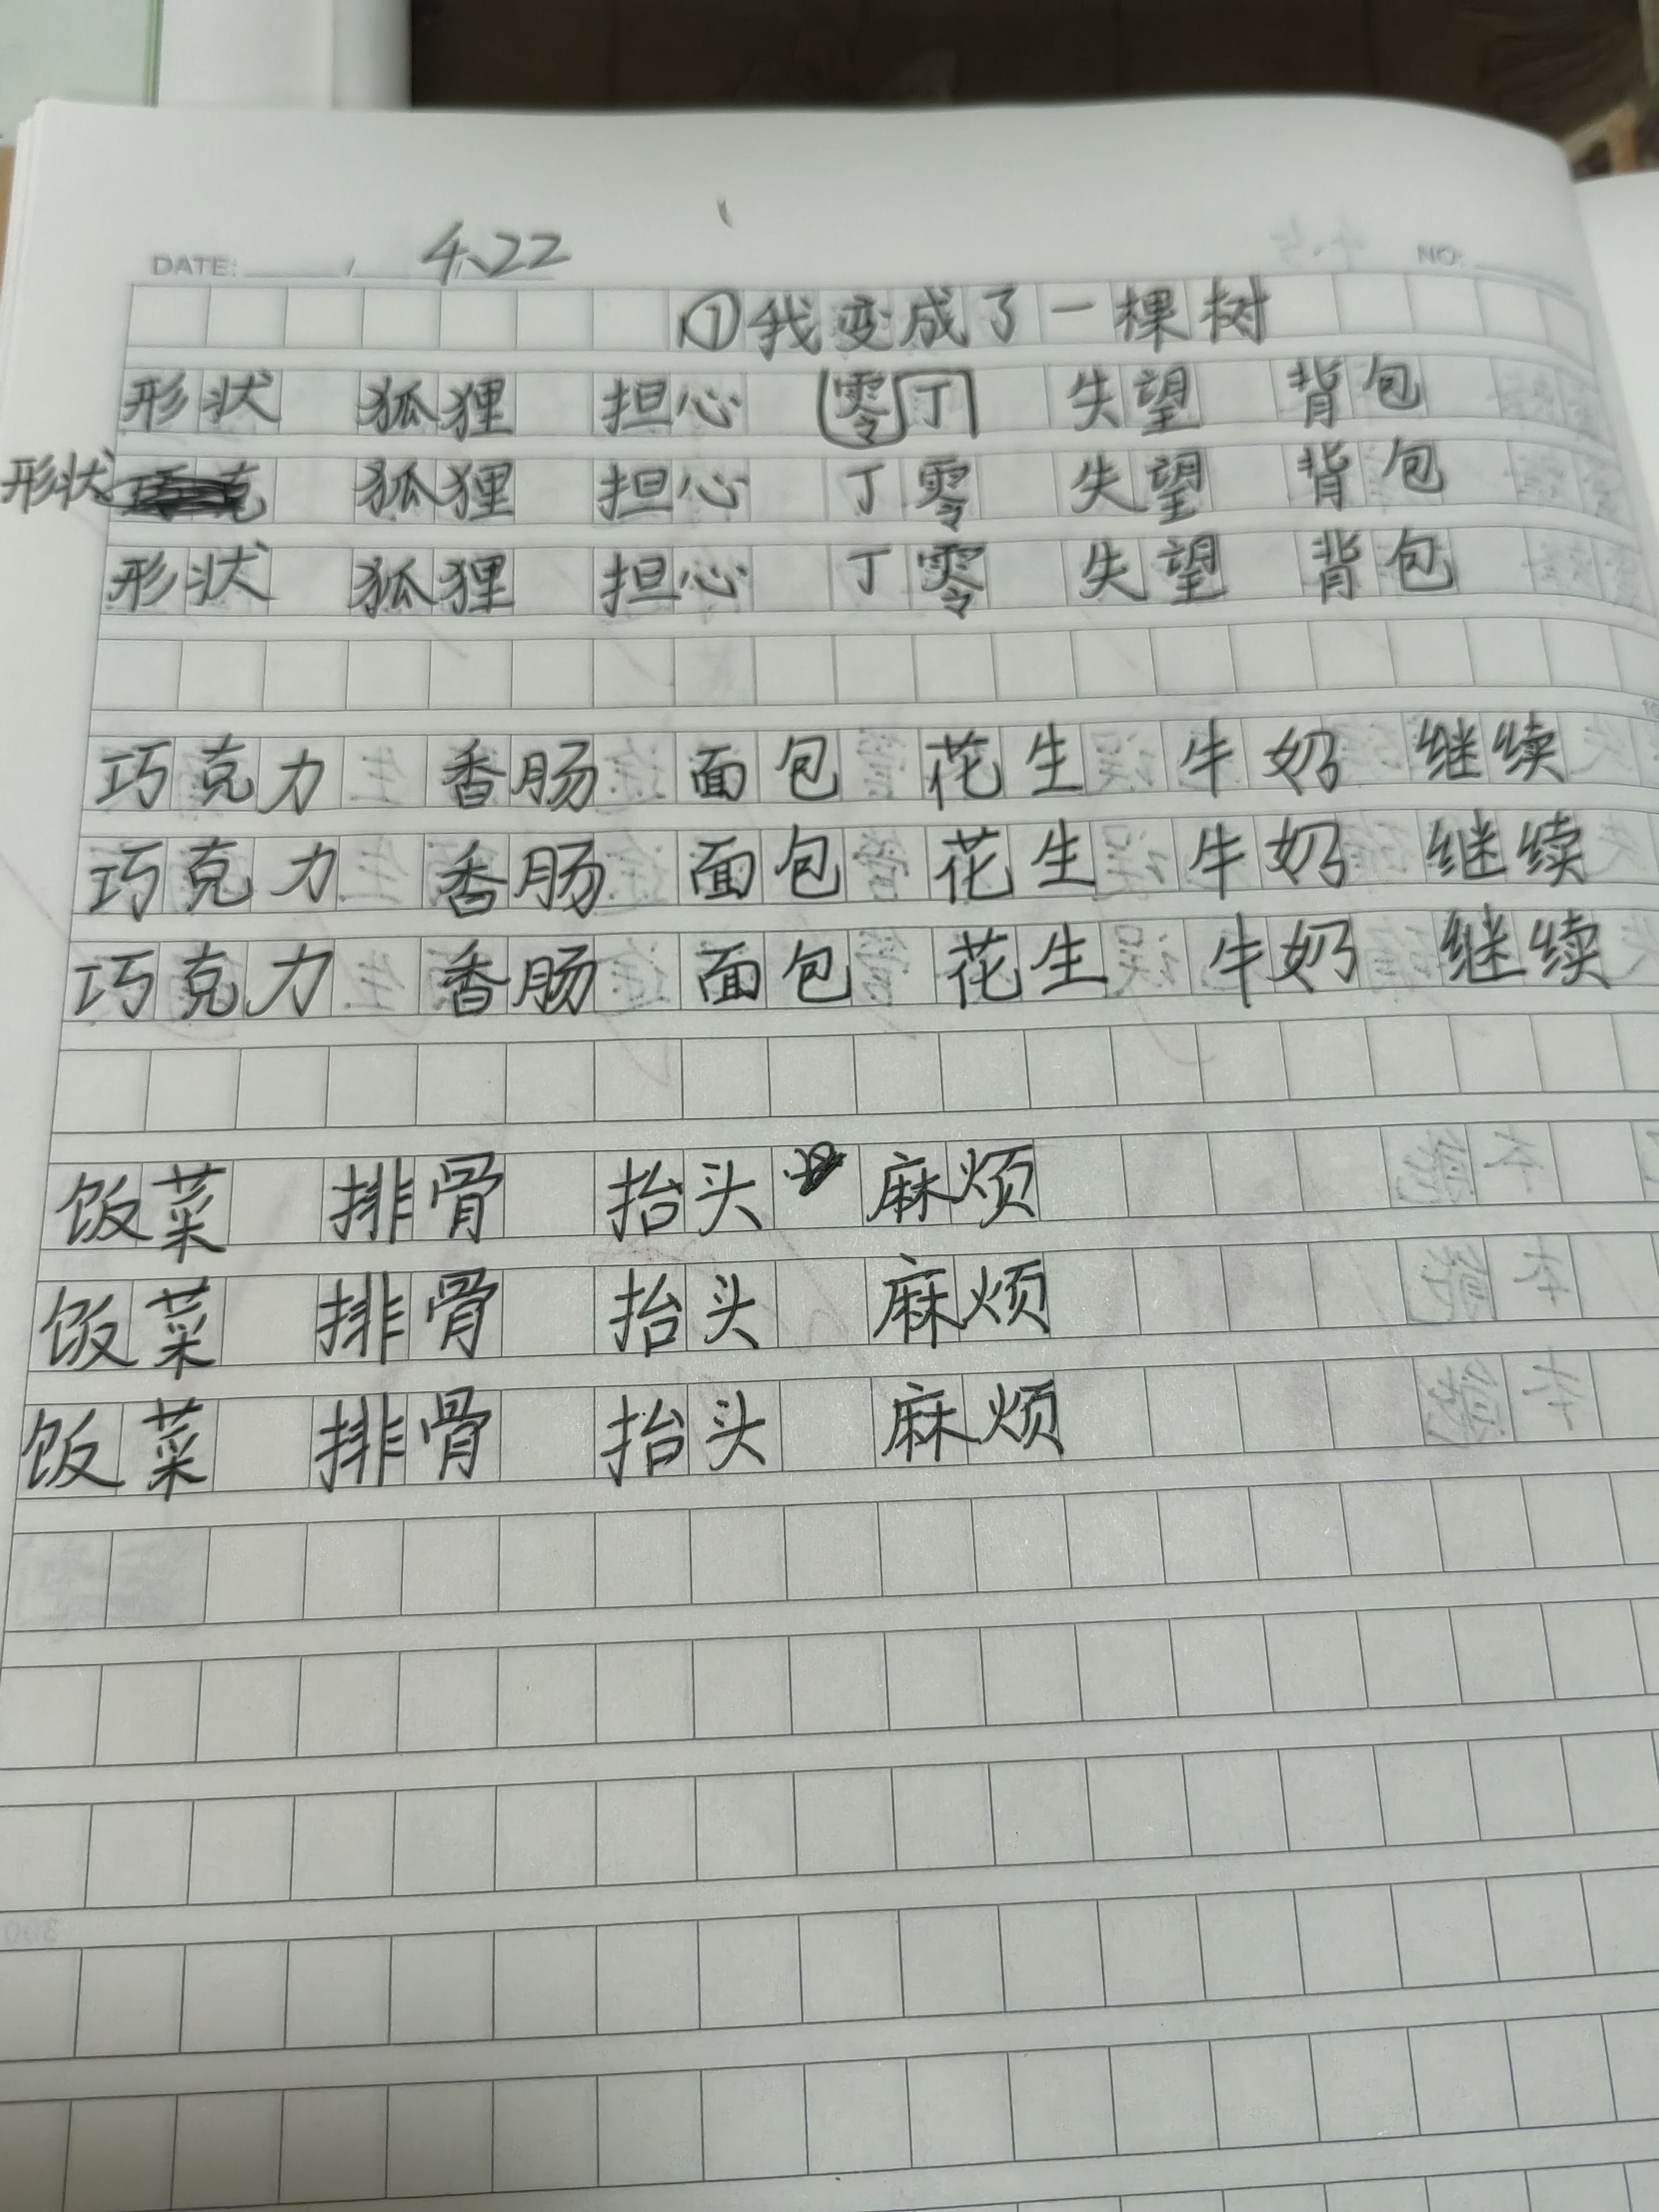 DATE: 4.22 NO:
①我变成了一棵树
形状 狐狸 担心 零丁 失望 背包
形状 狐狸 担心 丁零 失望 背包
形状 狐狸 担心 丁零 失望 背包
巧克力 香肠 面包 花生 牛奶 继续
巧克力 香肠 面包 花生 牛奶 继续
巧克力 香肠 面包 花生 牛奶 继续
饭菜 排骨 抬头 麻烦
饭菜 排骨 抬头 麻烦
饭菜 排骨 抬头 麻烦